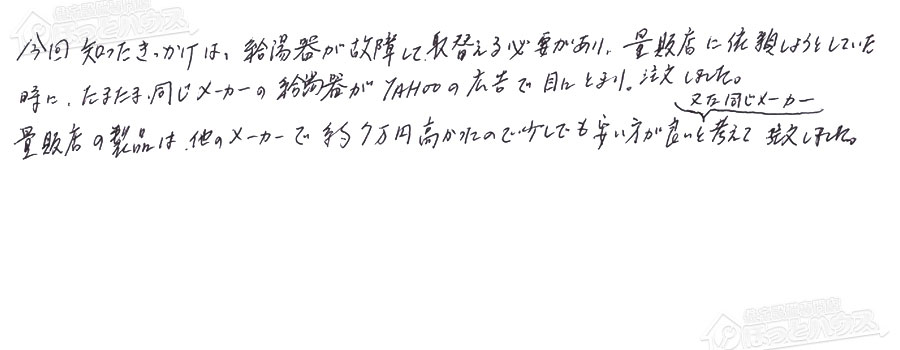 今回知ったきっかけは、給湯器が故障して取替える必要があり、量販店に依頼しようとしていた
時に、たまたま同じメーカーの給湯器がYAHOOの広告で目にとまり、注文しました。
又な同じメーカー
量販店の製品は、他のメーカーで約7万円高かったので少しでも安い方が良いと考えて注文しました。
住宅設備専門店
ほっとハウス
住宅設備専門店
ほっとハウス